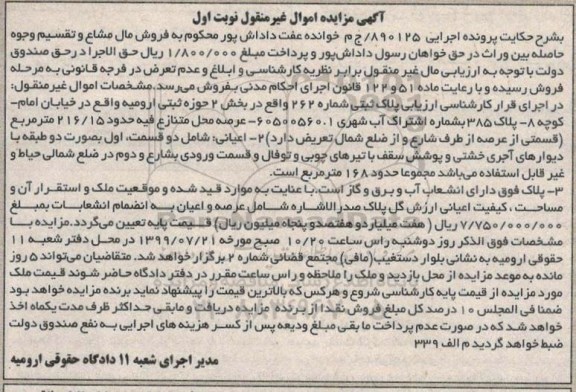 آگهی مزایده اموال غیرمنقول نوبت اول
بشرح حکایت پرونده اجرایی ۸۹۰۱۲۵/ج م خوانده عفت داداش پور محکوم به فروش مال مشاع و تقسیم وجوه
حاصله بین وراث در حق خواهان رسول داداش‌پور و پرداخت مبلغ ۱/۸۰۰/۰۰۰ ریال حق الاجرا در حق صندوق
دولت با توجه به ارزیابی مال غیر منقول برابر نظریه کارشناسی و ابلاغ و عدم تعرض در فرجه قانونی به مرحله
فروش رسیده و با رعایت ماده ۵۱ و ۱۲۶ قانون اجرای احکام مدنی بفروش می‌رسد. مشخصات اموال غیرمنقول:
در اجرای قرار کارشناسی ارزیابی پلاک ثبتی شماره ۲۶۲ واقع در بخش ۲ حوزه ثبتی ارومیه واقع در خیابان امام-
کوچه ۸- پلاک ۳۸۵ بشماره اشتراک آب شهری ۶۰۵۰۰۵۶۰.۱- عرصه محل متنازع فیه حدود ۲۱۶/۱۵ مترمربع
(قسمتی از عرصه از طرف شارع و از ضلع شمال تعریض دارد) ۲- اعیانی: شامل دو قسمت، اول بصورت دو طبقه با
دیوارهای آجری خشتی و پوشش سقف با تیرهای چوبی و توفال و قسمت ورودی بشارع و دوم در ضلع شمالی حیاط و
غیر قابل استفاده می‌باشد مجموعا حدود ۱۶۸ مترمربع است.
۳- پلاک فوق دارای انشعاب آب و برق و گاز است. با عنایت به موارد قید شده و موقعیت ملک و استقرار آن و
مساحت، کیفیت اعیانی ارزش کل پلاک صدرالاشاره شامل عرصه و اعیان به انضمام انشعابات بمبلغ
۷/۷۵۰/۰۰۰/۰۰۰ ریال (هفت میلیارد و هفتصد و پنجاه میلیون ریال) قیمت پایه تعیین می‌گردد. مزایده با
مشخصات فوق الذکر روز دوشنبه راس ساعت ۱۰/۲۰ صبح مورخه ۱۳۹۹/۰۷/۲۱ در محل دفتر شعبه ۱۱
حقوقی ارومیه به نشانی بلوار دستغیب(مافی) مجتمع قضائی شماره ۲ برگزار خواهد شد. متقاضیان می‌تواند ۵ روز
مانده به موعد مزایده از محل بازدید و ملک را ملاحظه و راس ساعت مقرر در دفتر دادگاه حاضر شوند قیمت ملک
مورد مزایده از قیمت پایه کارشناسی شروع و هرکس که بالاترین قیمت را پیشنهاد نماید برنده مزایده خواهد بود
ضمنا فی المجلس ۱۰ درصد کل مبلغ فروش نقد از برنده مزایده دریافت و مابقی حداکثر ظرف مدت یکماه اخذ
خواهد شد که در صورت عدم پرداخت ما بقی مبلغ ودیعه پس از کسر هزینه های اجرایی به نفع صندوق دولت
ضبط خواهد گردید م الف ۳۳۹
مدیر اجرای شعبه ۱۱ دادگاه حقوقی ارومیه